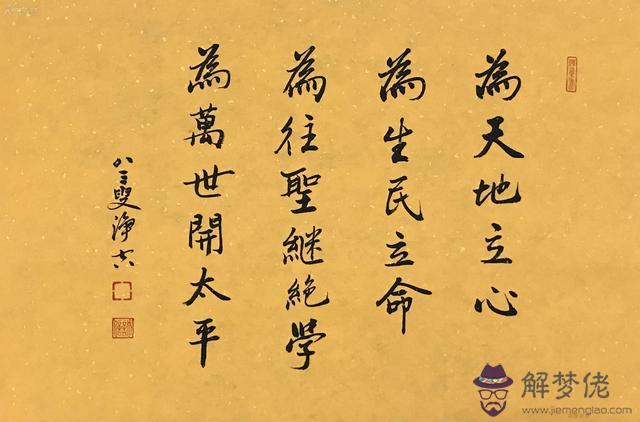 為天地立心
為生民立命
為往聖継絶學
為萬世開太平
八三叟淨空
解梦佬
www.jiemenglao.com